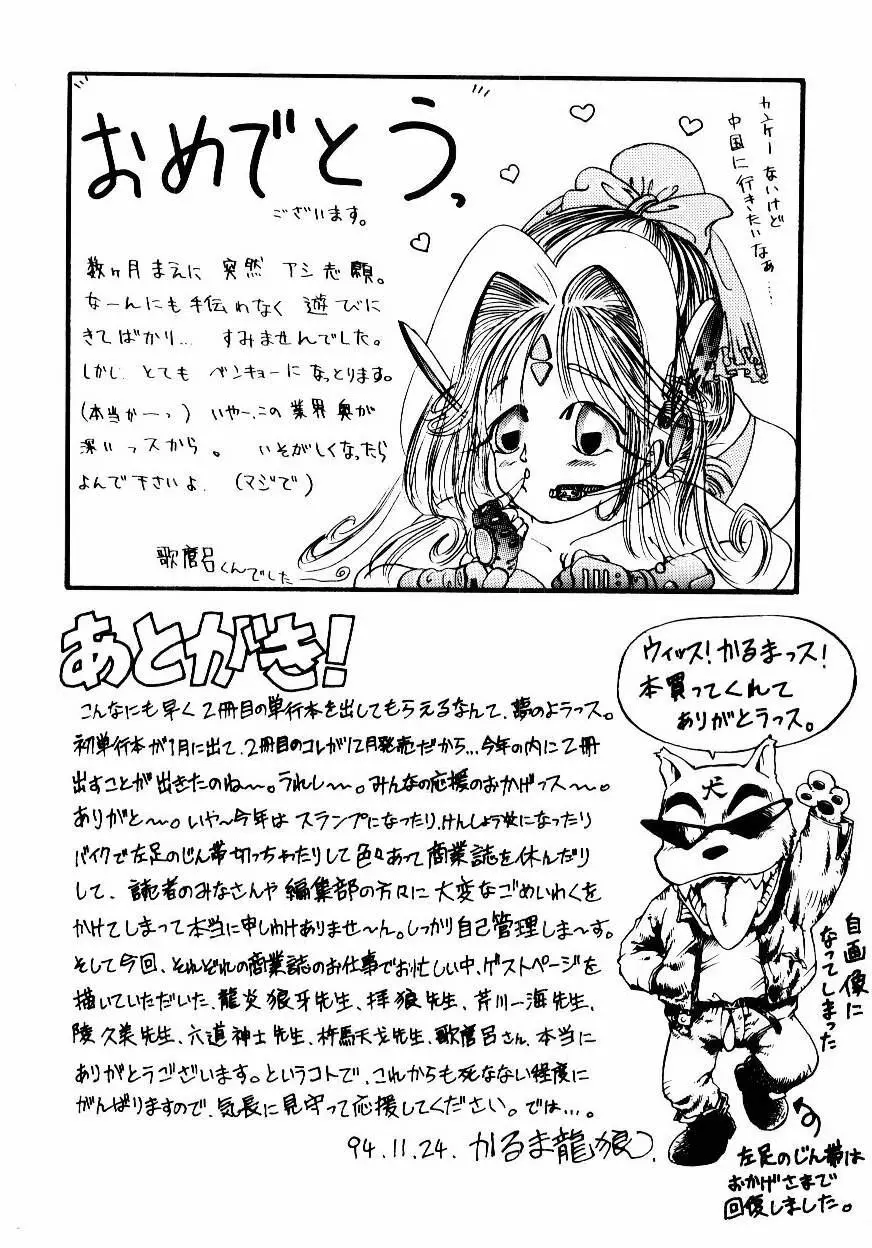 おめでとうっ
ございます。
カンケーないけど
中国に行きたいなぁ…
数ヶ月まえに 突然 アシ志願。
なーんにも手伝わなく 遊びに
きてばかり… すみませんでした。
しかし とても ベンキョーになっとります。
(本当かーっ) いやー、この業界奥が
深いっスから。 いそがしくなったら
よんで下さいよ (マジで)
歌麿呂くんでした
あとがき!
こんなにも早く2冊目の単行本を出してもらえるなんて、夢のようっス。
初単行本が1月に出て、2冊目のコレが12月発売だから…今年の内に2冊
出すことが出きたのね〜。うれし〜。みんなの応援のおかげっス〜。
ありがと〜。いや〜今年はスランプになったり、けんしょう炎になったり
バイクで左足のじん帯切っちゃたりして色々あって商業誌を休んだり
して、読者のみなさんや編集部の方々に大変なごめいわくを
かけてしまって本当に申しわけありませ〜ん。しっかり自己管理しま〜す。
そして今回、それぞれの商業誌のお仕事でお忙しい中、ゲストページを
描いていただいた、龍炎狼牙先生、拝狼先生、芹川一海先生、
陵久美先生、六道神士先生、杵馬天戈先生、歌麿呂さん、本当に
ありがとうございます。というコトで、これからも死なない程度に
がんばりますので、気長に見守って応援してください。では…。
94.11.24. かるま龍狼
ウィッス!かるまっス!
本買ってくれて
ありがとうっス。
犬
自画像に
なってしまった
左足のじん帯は
おかげさまで
回復しました。